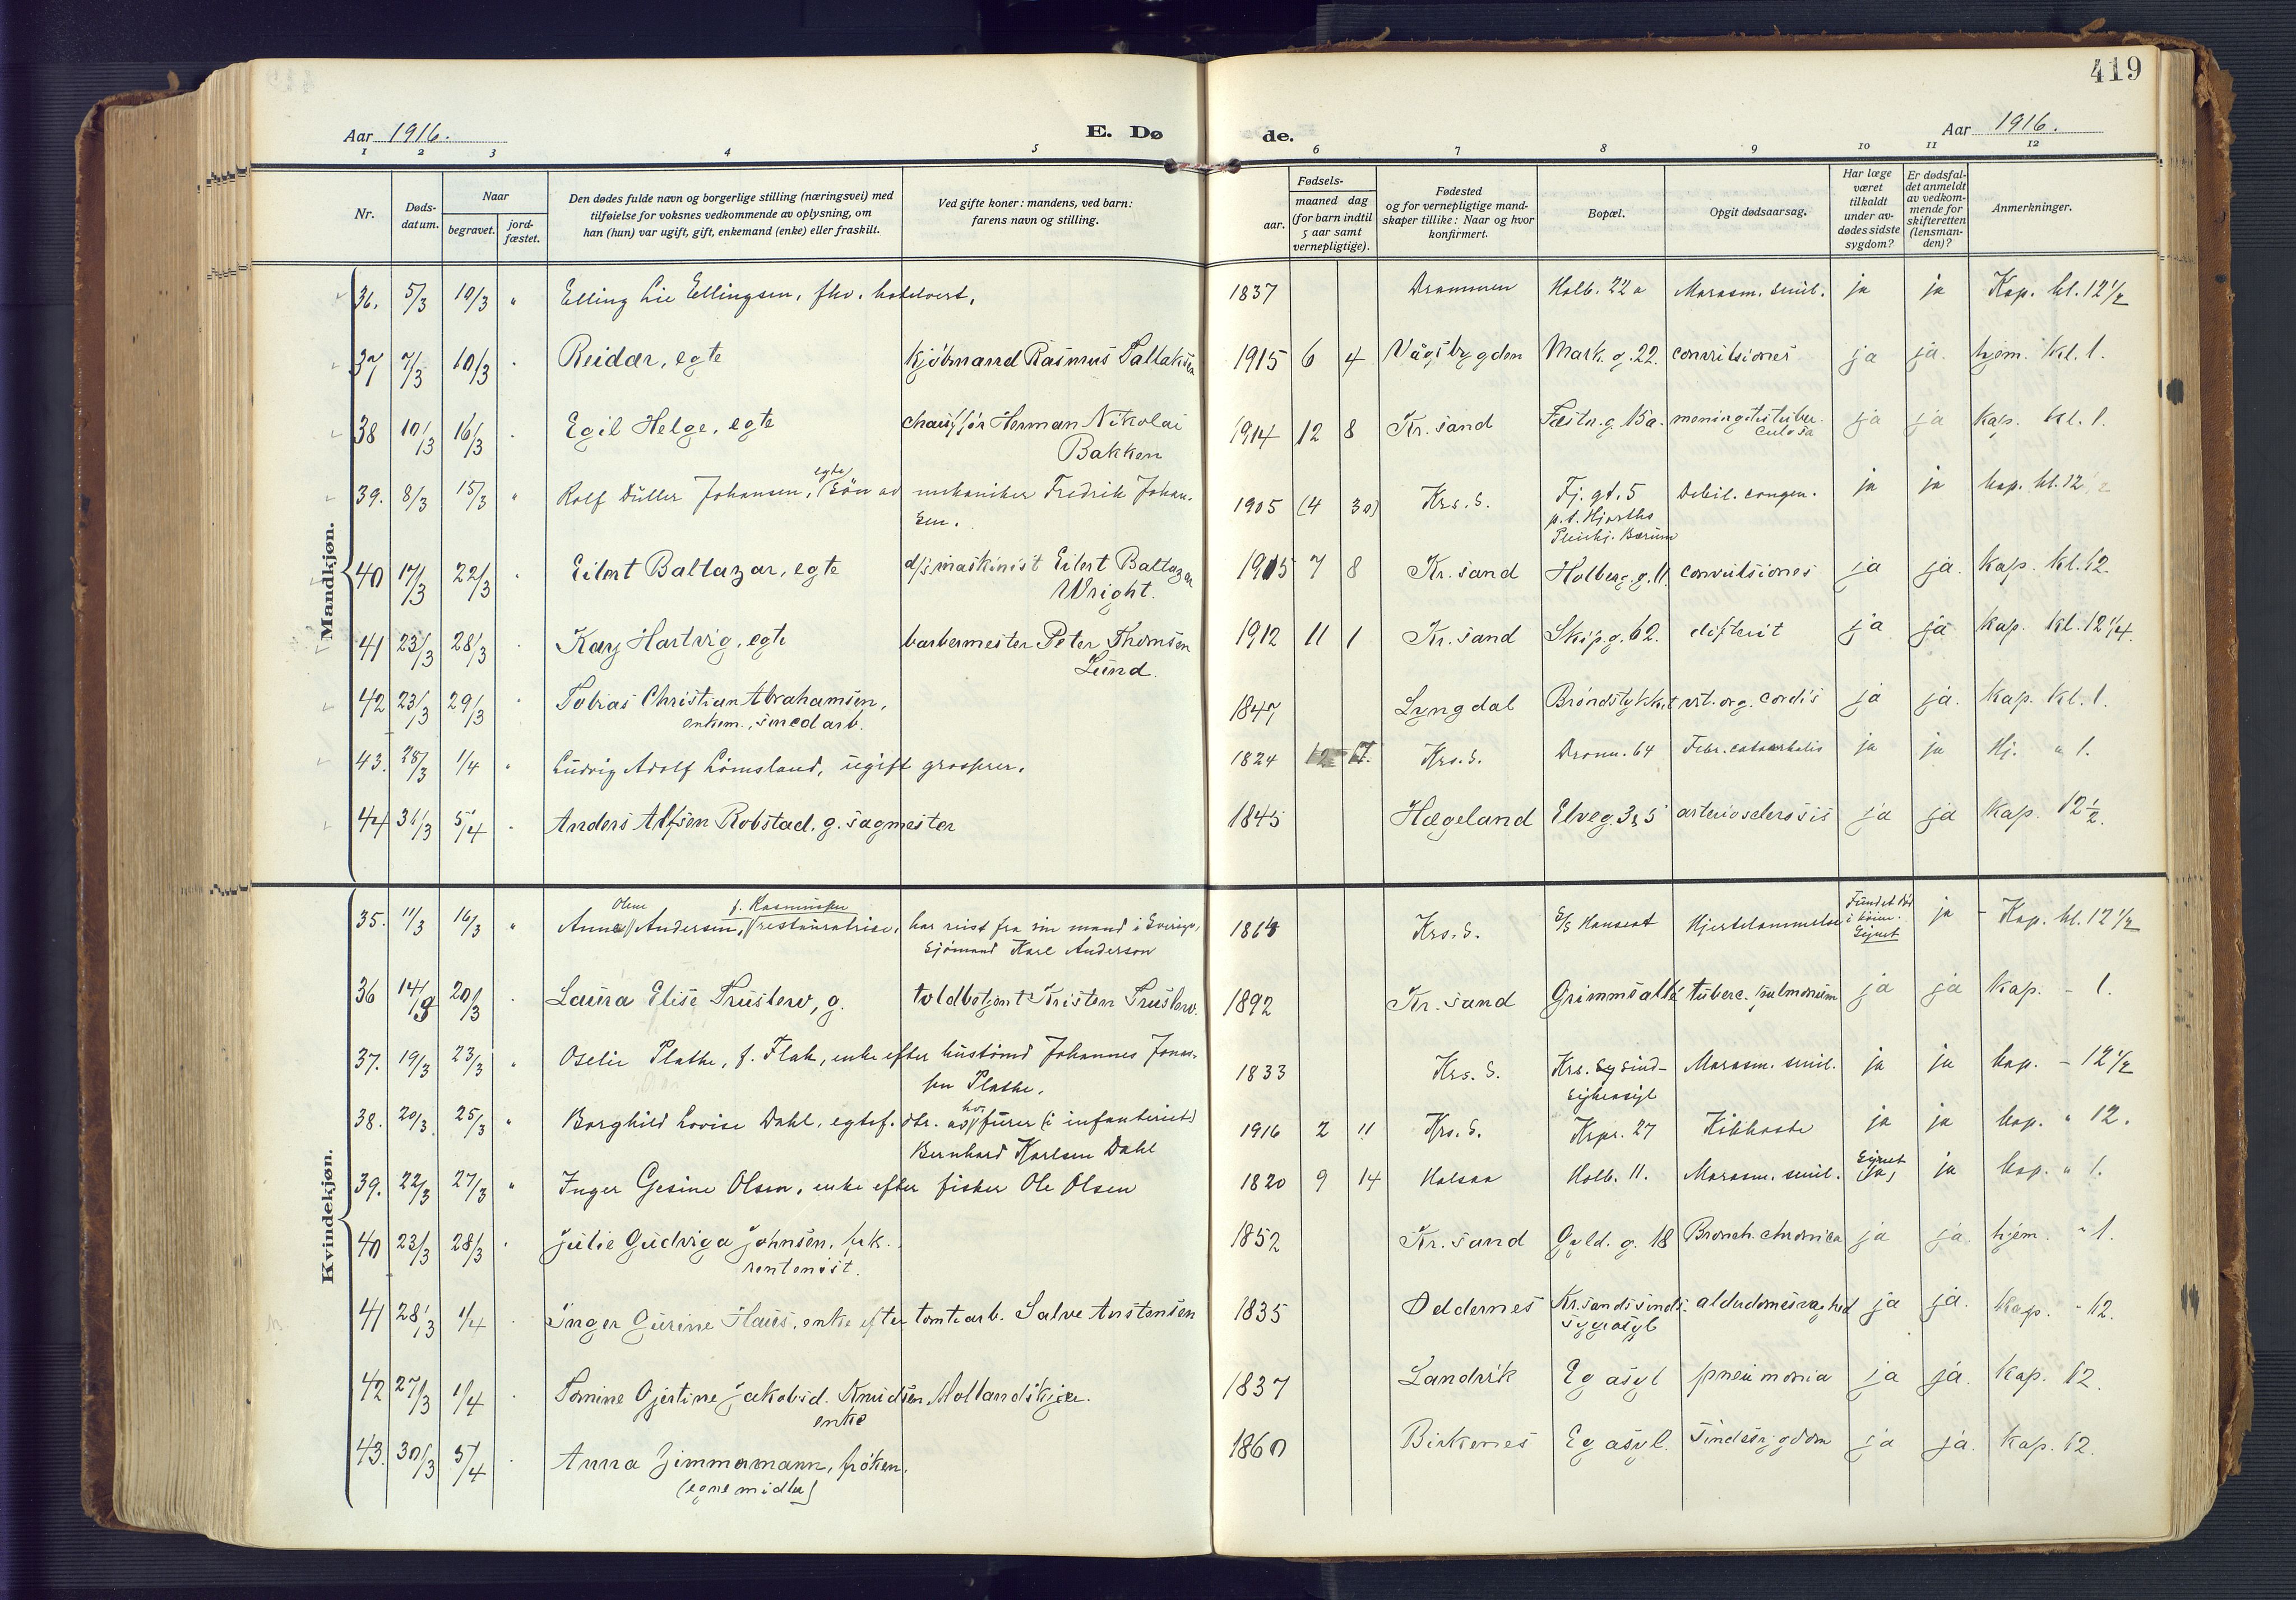 419
Aar 1916. E. Dø de. Aar 1916.
1 2 3 4 5 6 7 8 9 10 11 12
Nr. Døds-datum. Naar begravet. jord-fæstet. Den dødes fulde navn og borgerlige stilling (næringsvei) med tilføielse for voksnes vedkommende av oplysning, om han (hun) var ugift, gift, enkemand (enke) eller fraskilt. Ved gifte koner: mandens, ved barn: farens navn og stilling. Fødsels- aar. maaned dag (for barn indtil 5 aar samt vernepligtige). Fødested og for vernepligtige mandskaper tillike: Naar og hvor konfirmert. Bopæl. Opgit dødsaarsag. Har læge været tilkaldt under avdødes sidste sygdom? Er dødsfaldet anmeldt av vedkommende for skifteretten (lensmanden)? Anmerkninger.
Mandkjøn.
36. 5/3 10/3 " Elling Lie Ellingsen, fhv. hotelvert. 1837 Drammen Holb. 22a Marasm. senil. ja ja Kap. kl. 12 1/2
37 7/3 10/3 Reidar, egte kjöbmand Rasmus Tallaksen 1915 6 4 Vågsbygden Mark. g. 22. convulsiones ja ja. hjem. kl. 1.
38 10/3 16/3 Egil Helge, egte chaufför Herman Nikolai 1914 12 8 Kr.sand Festn.g. 15a. meningitis tuber- ja ja kap. kl. 1.
Bakken culosa
39. 8/3 15/3 " Rolf Düller Johansen, egte sön av mekaniker Fredrik Johan- 1905 (4 30) Krs.S. Fj. gt. 5 Debil. congen. ja ja kap. kl. 12 1/2
sen. p.t. Hjorths
Pleiehj. Bærum
40 17/3 22/3 Eilert Baltazar, egte d/s maskinist Eilert Baltazar 1915 7 8 Kr.sand Holberg.g. 11. convulsiones ja ja. kap. kl. 12.
Wright.
41 23/3 28/3 Kay Hartvig, egte barbermester Peter Thomsen 1912 11 1 Kr.sand Skip.g. 62. difterit ja ja kap. kl. 12 1/4.
Lund.
42 23/3 29/3 Tobias Christian Abrahamsen, 1847 Lyngdal Bröndstykket vit. org. cordis ja ja. kap. kl. 1.
enkem., smedarb.
43. 28/3 1/4 " Ludvig Adolf Lömsland, ugift grosserer. 1824 Krs.S. Dronn. 64 Febr. catarrhalis ja ja Hj. " 1.
44 31/3 5/4 Anders Alfsen Robstad, g. sagmester 1845 Hægeland Elveg. 35 arteriosclerosis ja ja kap. 12 1/2.
Kvindekjøn.
35. 11/3 16/3 " Anna Oline Andersen, f. Rasmussen restauratrise, har reist fra sin mand i Sverige, Krs.S. S/S Hanseat Hjertelammelse Fundet död i köien. Signet ja - Kap. kl. 12 1/2
sjömand Karl Anderson
36 14/3 20/3 Laura Elise Trüslew, g. toldbetjent Kristen Trüslew. 1892 Kr.sand Grimmsallé tuberc. pulmonum ja ja kap. - 1.
37. 19/3 23/3 " Oselie Plathe, f. Flak, enke efter hüstömd Johannes Jonas- 1833 Krs.S. Krs. sind- Marasm. senil. ja ja kap. - 12 1/2
sen Plathe. sygeasyl
38. 20/3 25/3 " Borghild Lovise Dahl, egtef. dtr. av furer (i infanteriet) 1916 2 11 Krs.S. Krpr. 27 Kikhoste ja ja kap. " 12.
Bernhard Karlsen Dahl
39. 22/3 27/3 " Inger Gesine Olsen, enke efter fisker Ole Olsen 1820 9 14 Halsaa Holb. 11. Marasm. senil. Signet (ja) ja kap. " 1.
40 23/3 28/3 Julie Gudviga Johnsen, frk. 1852 Kr.sand Gyld. g. 18 Bronch. chronica ja ja. hjem. " 1.
rentenist.
41 28/3 1/4 Inger Gurine Haus, enke efter tomtearb. Salve Anstensen 1835 Oddernes Kr.sands sinds- alderdomssvaghed ja ja. kap. - 12.
sygeasyl
42 27/3 1/4 Tomine Gjertine Jakobsd. Knudsen Mollandskjær. 1837 Landvik Eg asyl pneumonia ja ja. kap. 12.
enke
43. 30/3 5/4 Anna Zimmermann, fröken. 1860 Birkenes Eg asyl. sindssygdom ja ja. kap. 12.
(egne midler)